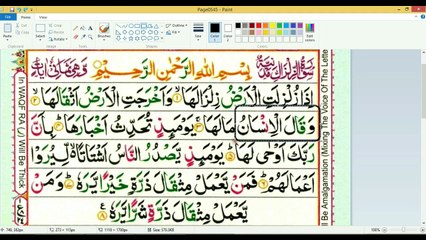 Page0545 - Paint
سُوْرَةُ الزِّلْزَالِ مَدَنِيَّةٌ
بِسْمِ اللهِ الرَّحْمٰنِ الرَّحِيْمِ
وَّهِىَ ثَمَانِىْ اٰيَاتٍ
اِذَا زُلْزِلَتِ الْاَرْضُ زِلْزَالَهَا ۙ﴿۱﴾ وَاَخْرَجَتِ الْاَرْضُ اَثْقَالَهَا ۙ﴿۲﴾
وَقَالَ الْاِنْسَانُ مَا لَهَا ۚ﴿۳﴾ يَوْمَئِذٍ تُحَدِّثُ اَخْبَارَهَا ۙ﴿۴﴾ بِاَنَّ
رَبَّكَ اَوْحٰى لَهَا ؕ﴿۵﴾ يَوْمَئِذٍ يَّصْدُرُ النَّاسُ اَشْتَاتًا ۙ لِّيُرَوْا
اَعْمَالَهُمْ ؕ﴿۶﴾ فَمَنْ يَّعْمَلْ مِثْقَالَ ذَرَّةٍ خَيْرًا يَّرَهٗ ؕ﴿۷﴾ وَمَنْ
يَّعْمَلْ مِثْقَالَ ذَرَّةٍ شَرًّا يَّرَهٗ ﴿۸﴾
In WAQF RA (ر) Will Be Thick
ll Be Amalgamation (Mixing The Voice Of The Lette